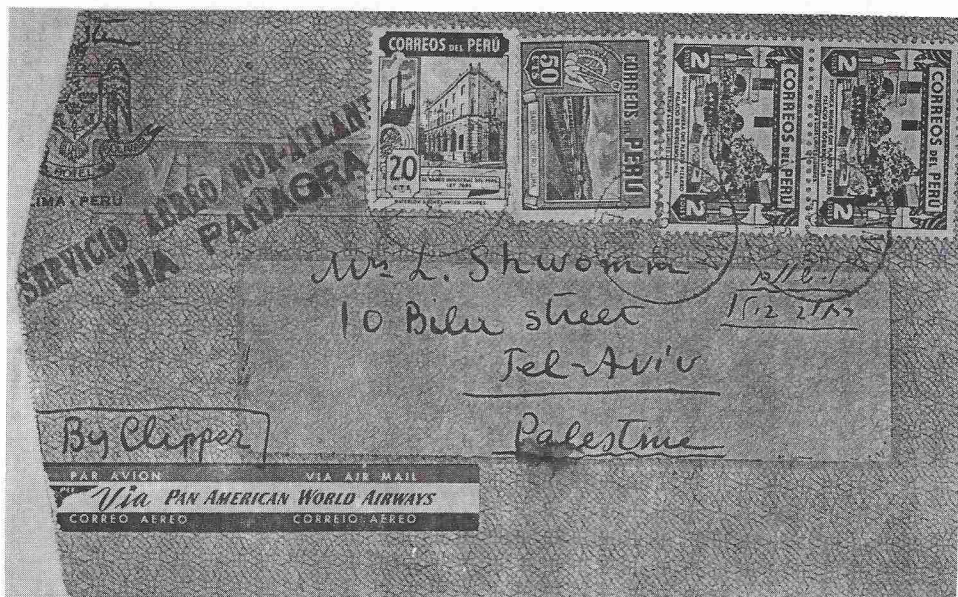 HOTEL
LIMA - PERU
SERVICIO AEREO NOR-ATLANT
VIA PANAGRA
CORREOS DEL PERÚ
20
CTS
50
CTS
CORREOS DEL PERU
2
CORREOS DEL PERU
2
2
CORREOS DEL PERU
2
Mrs L. Shwomin
10 Bilu street
Tel-Aviv
Palestine
By Clipper
PAR AVION VIA AIR MAIL
Via PAN AMERICAN WORLD AIRWAYS
CORREO AEREO CORREIO AEREO